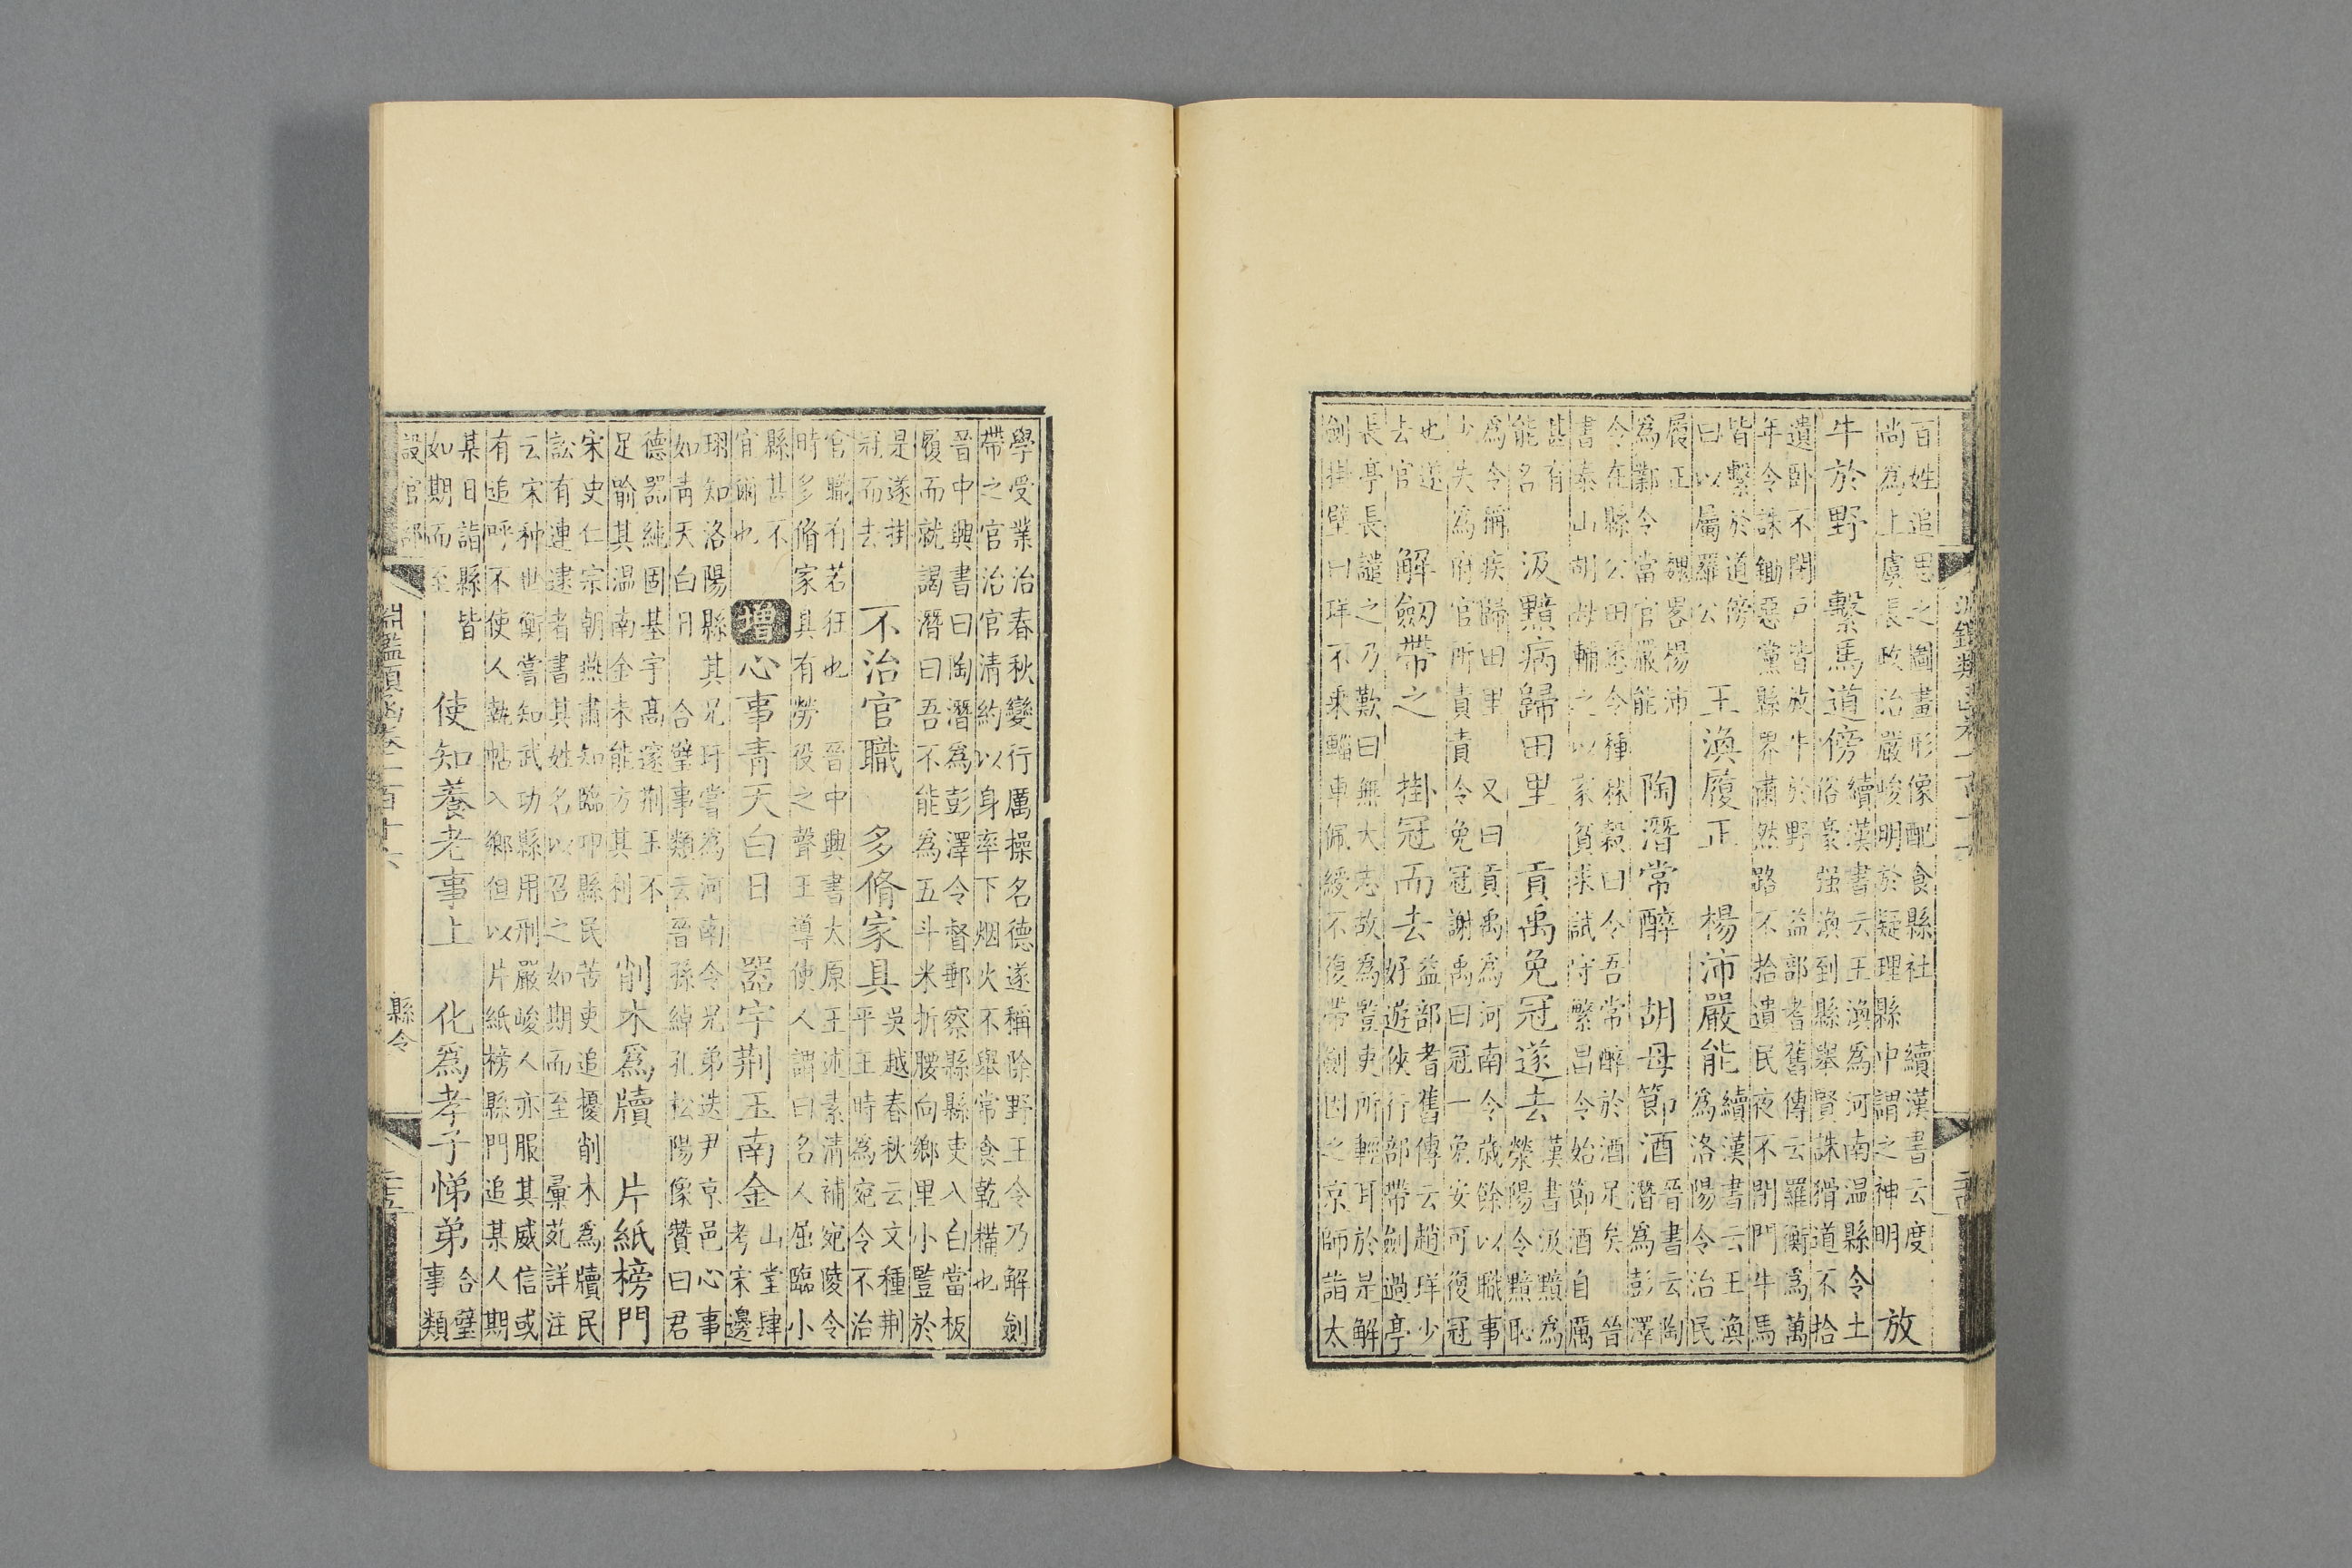 百姓追思之圖畫形像配食縣社　續漢書云度
尚爲上虞長政治嚴峻明於疑理縣中謂之神明
放
牛於野　繫馬道傍
續漢書云王渙爲河南温縣令土
俗豪强渙到縣舉賢誅猾道不拾
遺卧不閉戸皆放牛於野　益部耆舊傳云羅衡爲萬
年令誅鋤惡黨縣界肅然路不拾遺民夜不閉門牛馬
皆繫於道傍
曰以屬羅公
王渙履正　楊沛嚴能
續漢書云王渙
爲洛陽令治民
履正　魏畧楊沛
爲鄴令當官嚴能
陶潛常醉　胡母節酒
晉書云陶
潛爲彭澤
令在縣公田悉令種秫穀曰令吾常醉於酒足矣　晉
書泰山胡母輔之以家貧求試守繁昌令始節酒自厲
甚有
能名
汲黯病歸田里　貢禹免冠遂去
漢書汲黯爲
滎陽令黯恥
爲令稱疾歸田里　又曰貢禹爲河南令歲餘以職事
少失爲府官所責責令免冠謝禹曰冠一免安可復冠
也遂
去官
解劒帶之　掛冠而去
益部耆舊傳云趙珜少
好遊俠行部帶劍過亭
長亭長譴之乃歎曰無大志故爲豎吏所輕耳於是解
劍挂壁曰珜不乘輜車佩綬不復帶劍因之京師詣太
學受業治春秋變行厲操名德遂稱除野王令乃解劍
帶之官治官清約以身率下烟火不舉常食乾糒也
晉中興書曰陶潛爲彭澤令督郵察縣縣吏入白當板
履而就謁潛曰吾不能爲五斗米折腰向鄉里小豎於
是遂掛
冠而去
不治官職　多脩家具
吳越春秋云文種荆
平王時爲宛令不治
官職有若狂也　晉中興書太原王述素清補宛陵令
時多脩家具有勞役之聲王導使人謂曰名人屈臨小
縣甚不
宜爾也
增　心事青天白日　器宇荆玉南金
山堂肆
考宋邊
珝知洛陽縣其兄玗嘗爲河南令兄弟迭尹京邑心事
如靑天白日　合璧事類云晉孫綽孔松陽像贊曰君
德器純固基宇高邃荆玉不
足喻其温南金未能方其利
削木爲牘　片紙榜門
宋史仁宗朝燕肅知臨卭縣民苦吏追擾削木爲牘民
訟有連逮者書其姓名以召之如期而至　彙苑詳注
云宋种世衡嘗知武功縣用刑嚴峻人亦服其威信或
有追呼不使人執帖入鄉但以片紙榜縣門追某人期
某日詣縣皆
如期而至
使知養老事上　化爲孝子悌弟
合璧
事類
設官部
淵鑑類函卷一百十六　縣令